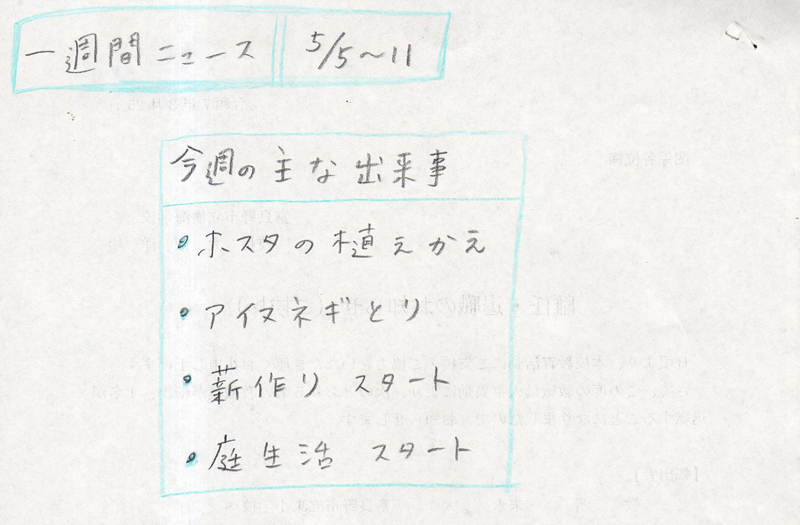 一週間ニュース 5/5〜11
今週の主な出来事
• ホスタの植えかえ
• アイヌネギとり
• 薪作り スタート
• 庭生活 スタート